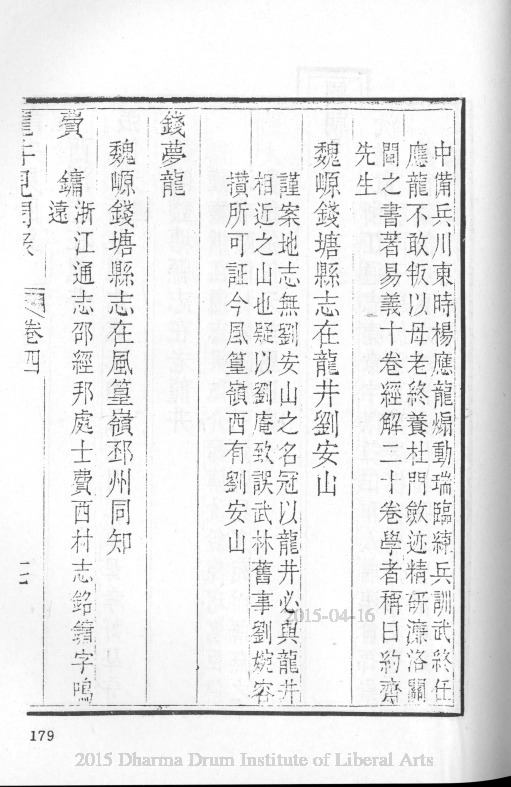 中備兵川東時楊應龍煽動瑞臨練兵訓武終任
應龍不敢叛以母老終養杜門斂迹精研濂洛關
閩之書著易義十卷經解二十卷學者稱曰約齋
先生
魏㟲錢塘縣志在龍井劉安山
謹案地志無劉安山之名冠以龍井必與龍井
相近之山也疑以劉庵致誤武林舊事劉婉容
攢所可証今風篁嶺西有劉安山
錢夢龍
魏㟲錢塘縣志在風篁嶺邳州同知
費鏞
遠
浙江通志邵經邦處士費西村志銘鏞字鳴
龍井見聞录
卷四
七
2015-04-16
179
2015 Dharma Drum Institute of Liberal Arts